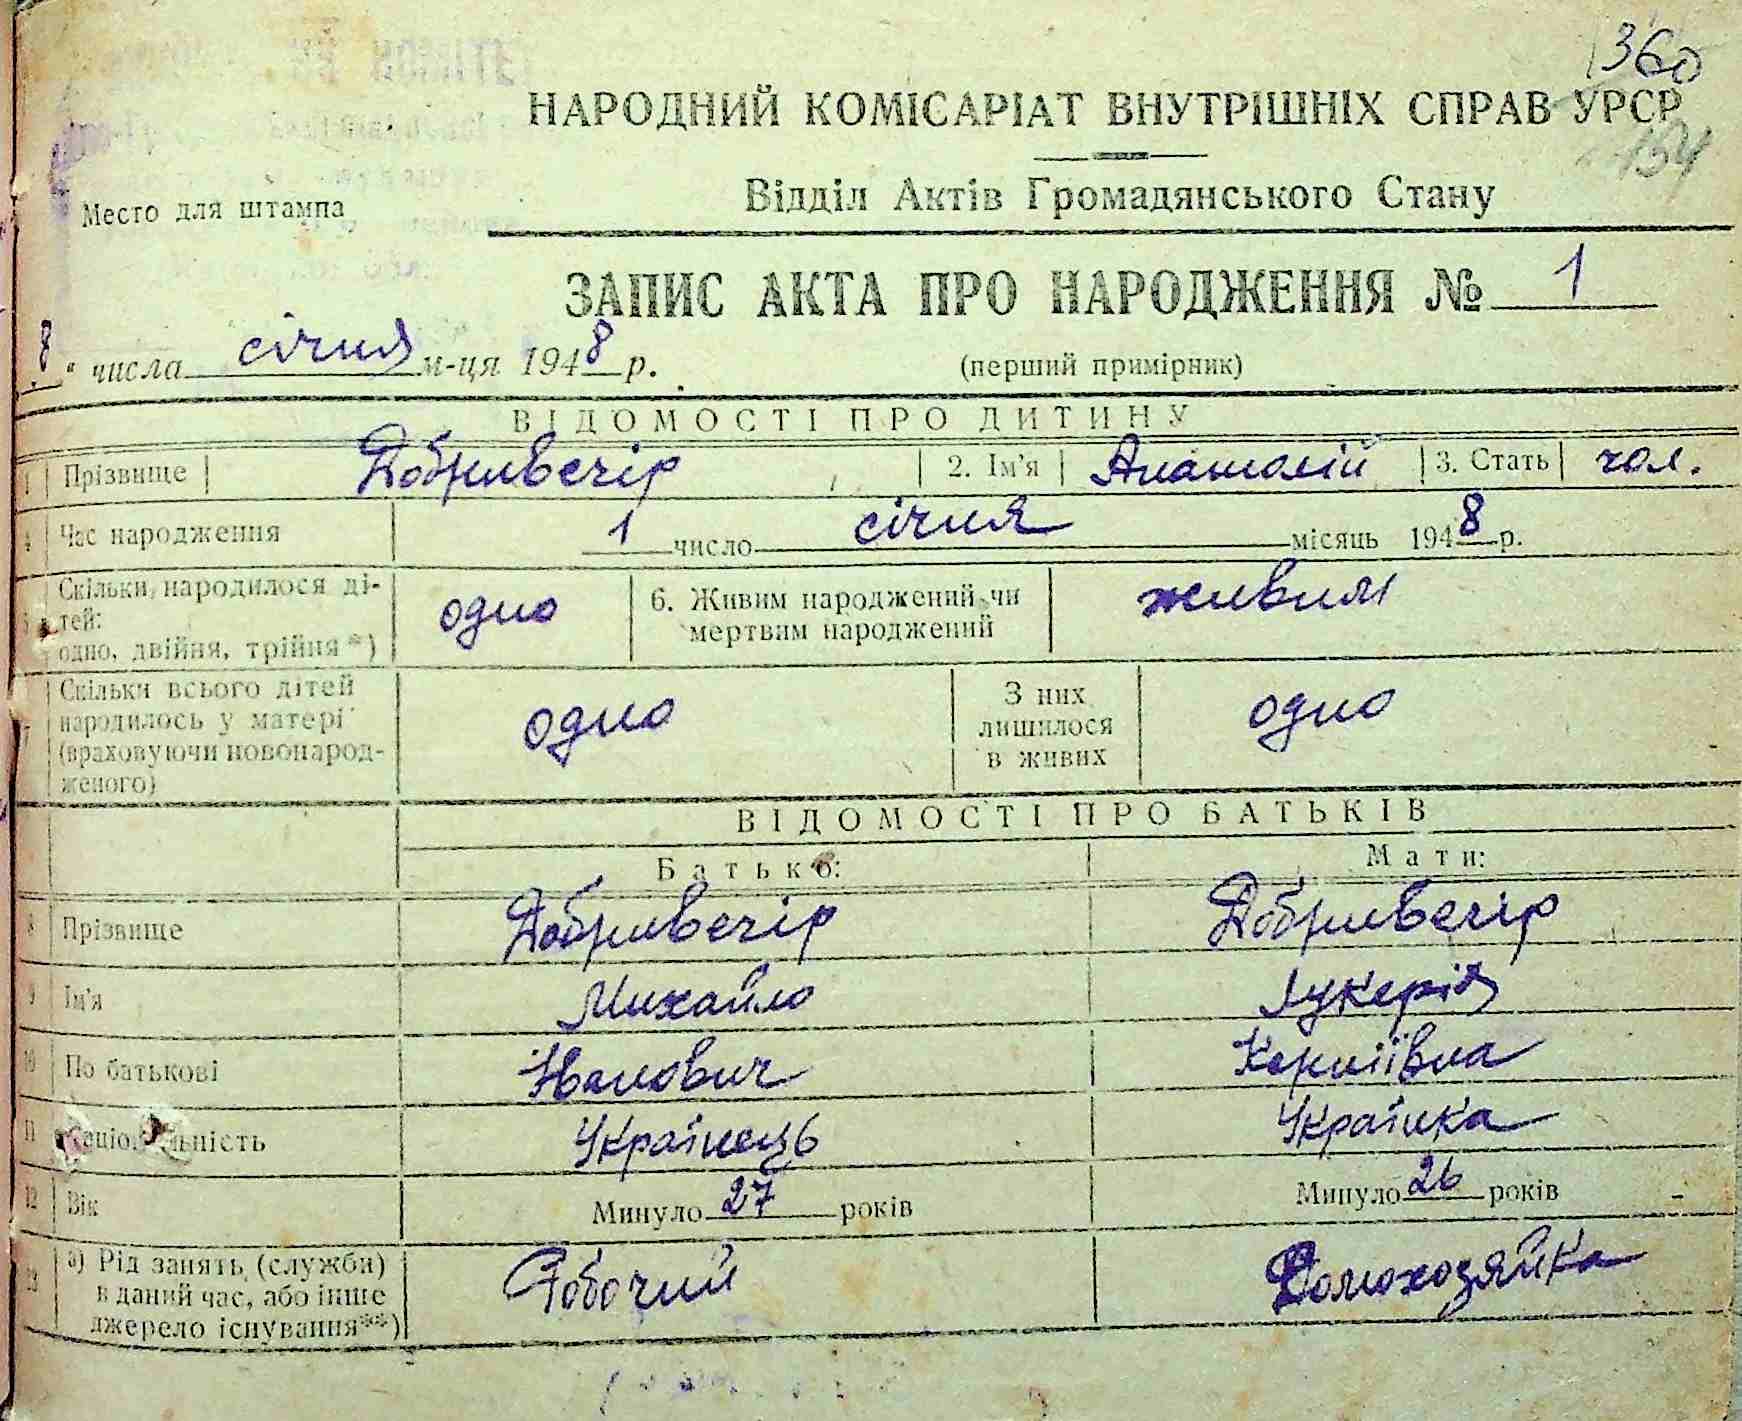 360
НАРОДНИЙ КОМІСАРІАТ ВНУТРІШНІХ СПРАВ УРСР
154
Место для штампа
Відділ Актів Громадянського Стану
ЗАПИС АКТА ПРО НАРОДЖЕННЯ № 1
8 " числа січня м-ця 1948 р. (перший примірник)
ВІДОМОСТІ ПРО ДИТИНУ
1 Прізвище Добривечір 2. Ім'я Анатолій 3. Стать чол.
4 Час народження 1 число січня місяць 1948 р.
5 Скільки народилося ді-
тей:
одно, двійня, трійня*) одно 6. Живим народжений чи
мертвим народжений живим
7 Скільки всього дітей
народилось у матері
(враховуючи новонарод-
женого) одно З них
лишилося
в живих одно
ВІДОМОСТІ ПРО БАТЬКІВ
Батько: Мати:
8 Прізвище Добривечір Добривечір
9 Ім'я Михайло Лукерія
10 По батькові Іванович Корніївна
11 Національність Українець Українка
12 Вік Минуло 27 років Минуло 26 років
13 а) Рід занять (служби)
в даний час, або інше
джерело існування**) Робочий Домохозяйка